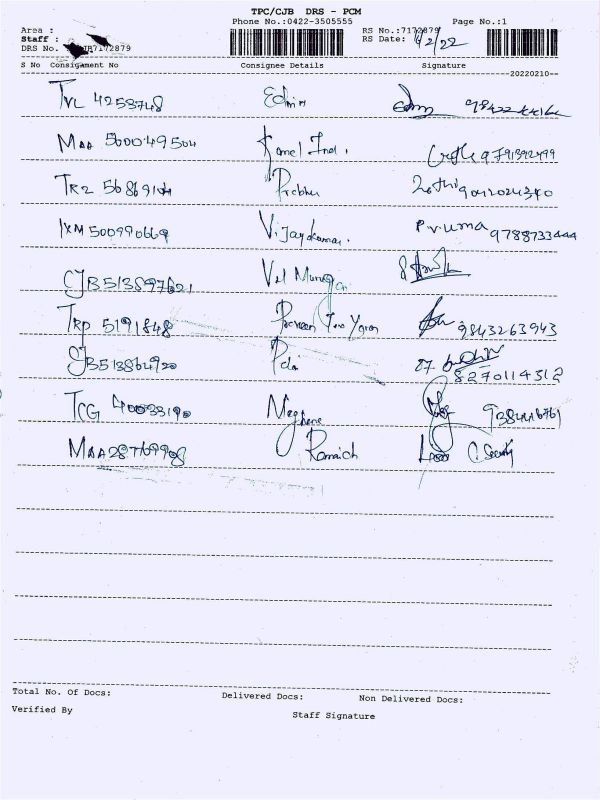 TPC/CJB DRS - PCM
Phone No.:0422-3505555 Page No.:1
Area : RS No.:7172879
Staff : RS Date: /2/22
DRS No. JB7172879
S No Consignment No Consignee Details Signature
--20220210--
TVL 4253748 Edmin 98422
MAA 500049504 Kamel Ind. 9791392499
TRZ 56869104 Prabhu 9042024340
IXM 500990669 Vijayakumar. P.V.uma 9788733444
CJB513897621 Vel Murugan
TRP 5191848 9843263943
CJB513864920 8270114312
TCG 40033190 Meghana
MAA287699908 Ramaich
Total No. Of Docs: Delivered Docs: Non Delivered Docs:
Verified By Staff Signature